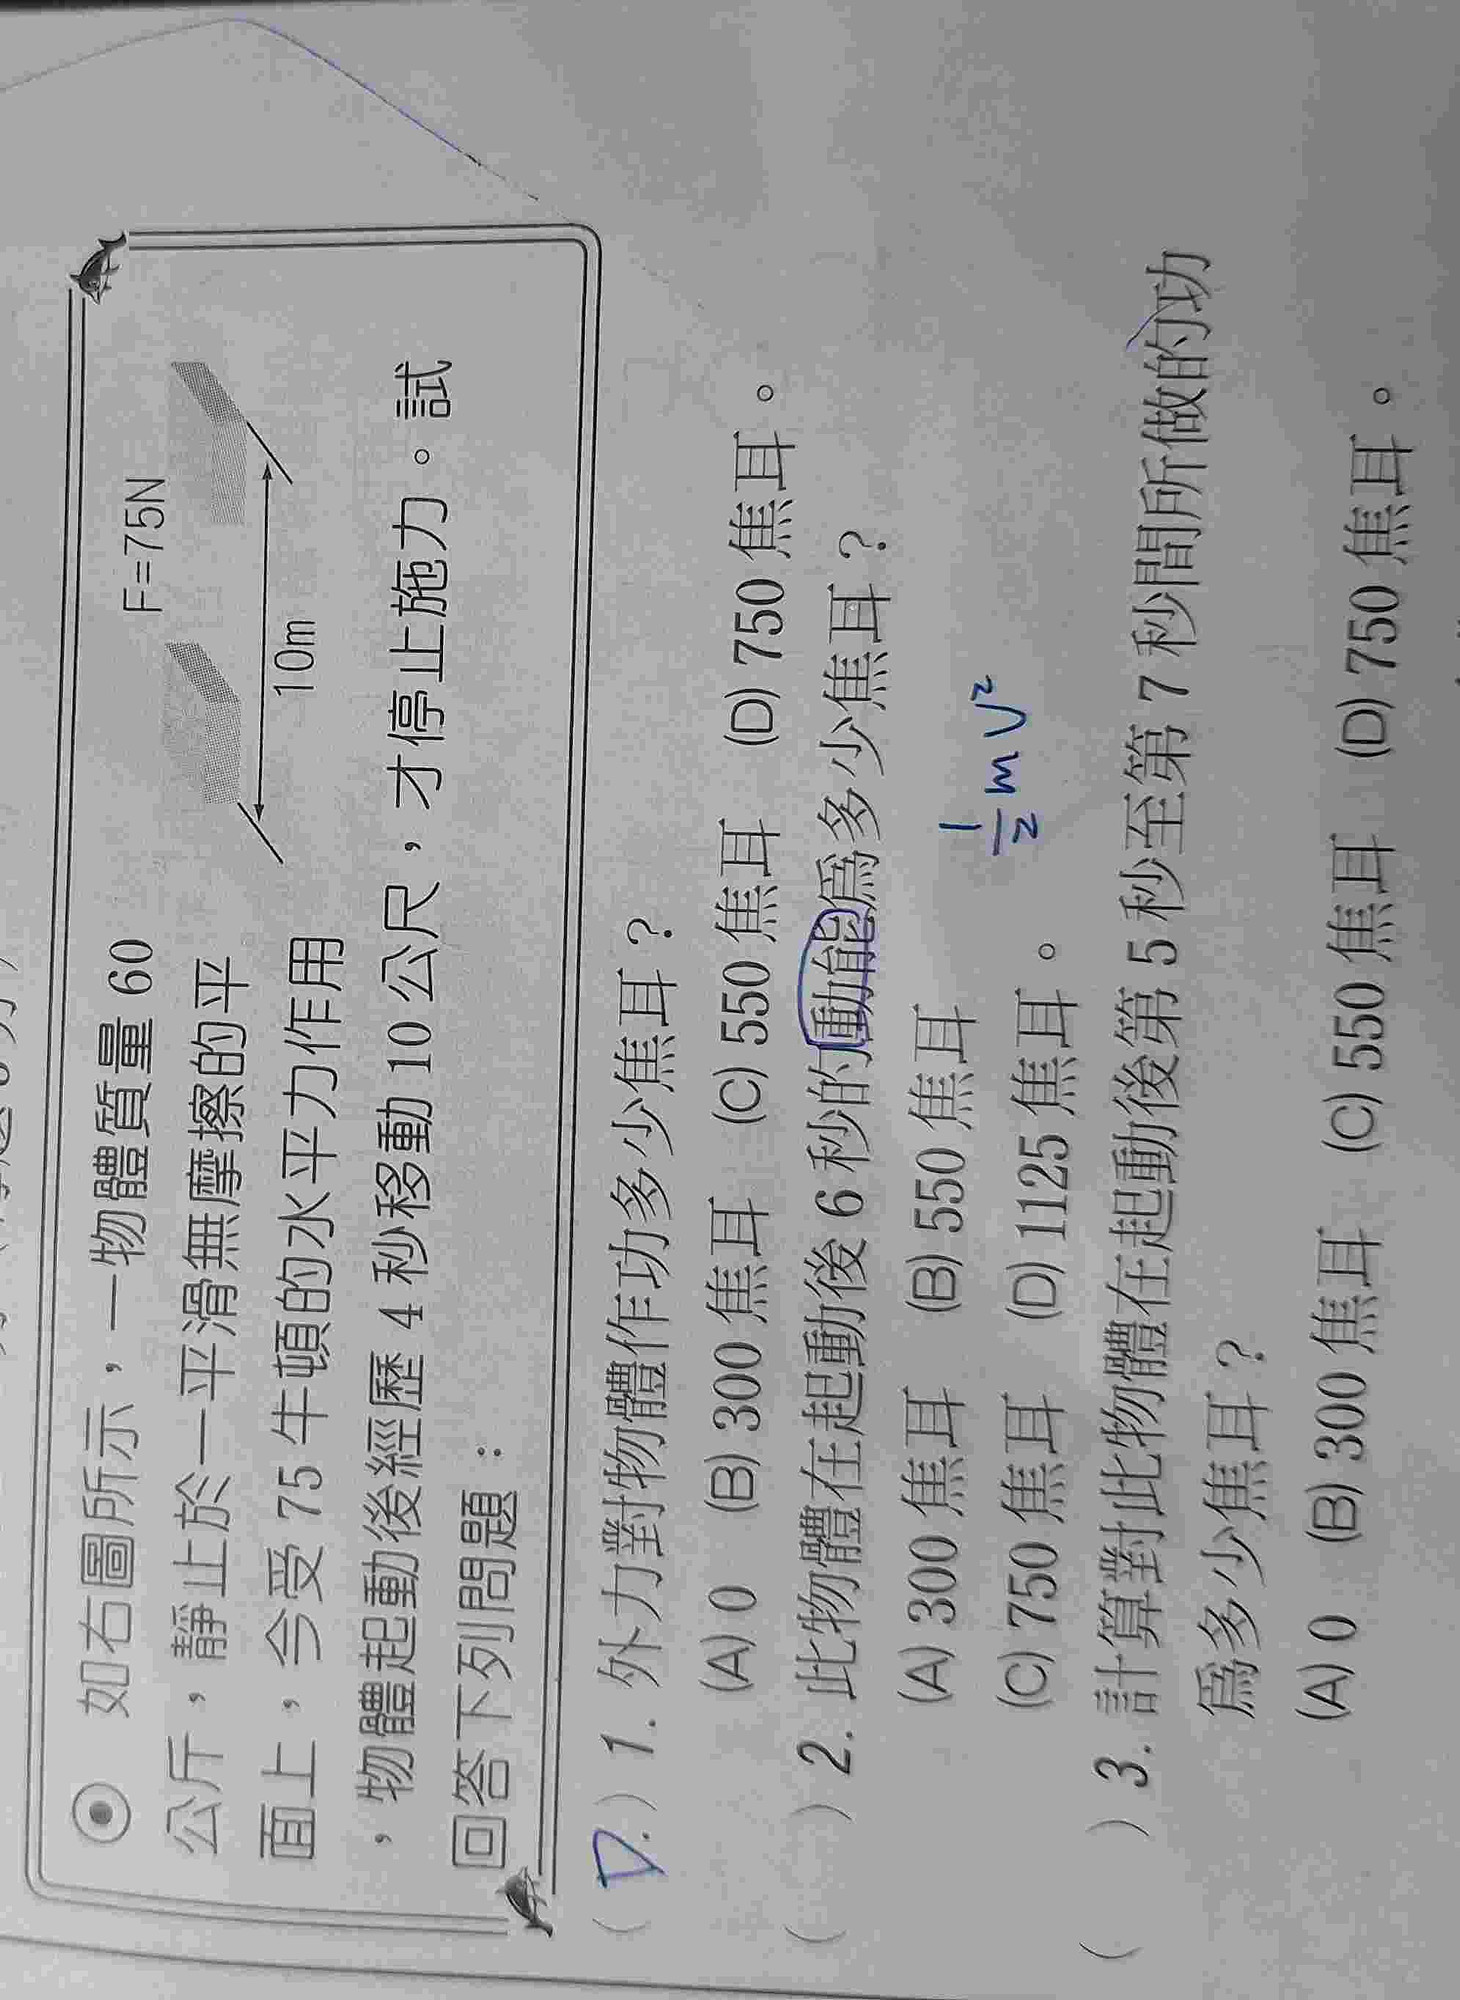 如右圖所示，一物體質量 60
公斤，靜止於一平滑無摩擦的平
面上，今受 75 牛頓的水平力作用
，物體起動後經歷 4 秒移動 10 公尺，才停止施力。試
回答下列問題：
F=75N
10m
(D.) 1. 外力對物體作功多少焦耳？
(A) 0 (B) 300 焦耳 (C) 550 焦耳 (D) 750 焦耳。
( ) 2. 此物體在起動後 6 秒的動能為多少焦耳？
(A) 300 焦耳 (B) 550 焦耳
(C) 750 焦耳 (D) 1125 焦耳。
½mv²
( ) 3. 計算對此物體在起動後第 5 秒至第 7 秒間所做的功
為多少焦耳？
(A) 0 (B) 300 焦耳 (C) 550 焦耳 (D) 750 焦耳。